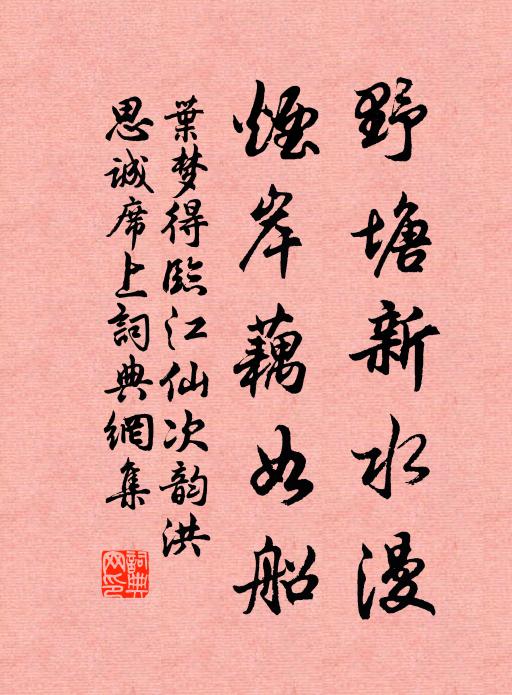 野塘新水漫
煙岸藕如船
葉梦得臨江仙次韵洪
思诚席上詞典網集
詞典网印